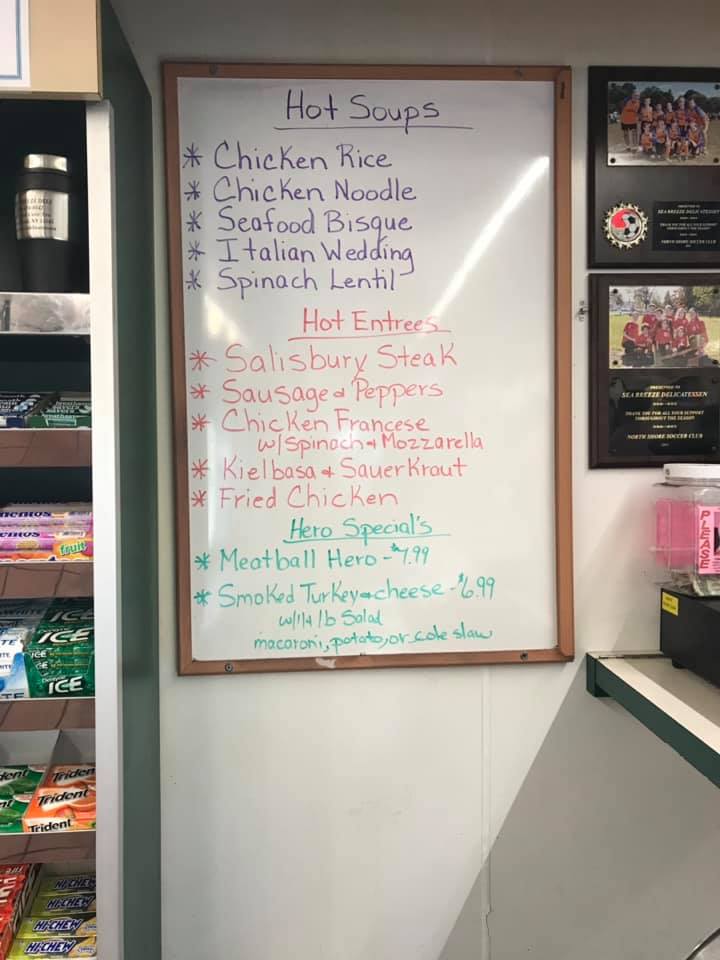 Hot Soups
* Chicken Rice
* Chicken Noodle
* Seafood Bisque
* Italian Wedding
* Spinach Lentil
Hot Entrees
* Salisbury Steak
* Sausage & Peppers
* Chicken Francese
w/Spinach & Mozzarella
* Kielbasa & SauerKraut
* Fried Chicken
Hero Special's
* Meatball Hero - $7.99
* Smoked Turkey & cheese - $6.99
w/1/4 lb Salad
macaroni, potato, or cole slaw
PRESENTED TO
SEA BREEZE DELICATESSEN
THANK YOU FOR ALL YOUR SUPPORT
THROUGHOUT THE SEASON
NORTH SHORE SOCCER CLUB
PRESENTED TO
SEA BREEZE DELICATESSEN
THANK YOU FOR ALL YOUR SUPPORT
THROUGHOUT THE SEASON
NORTH SHORE SOCCER CLUB
PLEASE
mentos
fruit
ICE
ICE
ICE
Trident
Trident
Trident
HI-CHEW
HI-CHEW
HI-CHEW
HI-CHEW